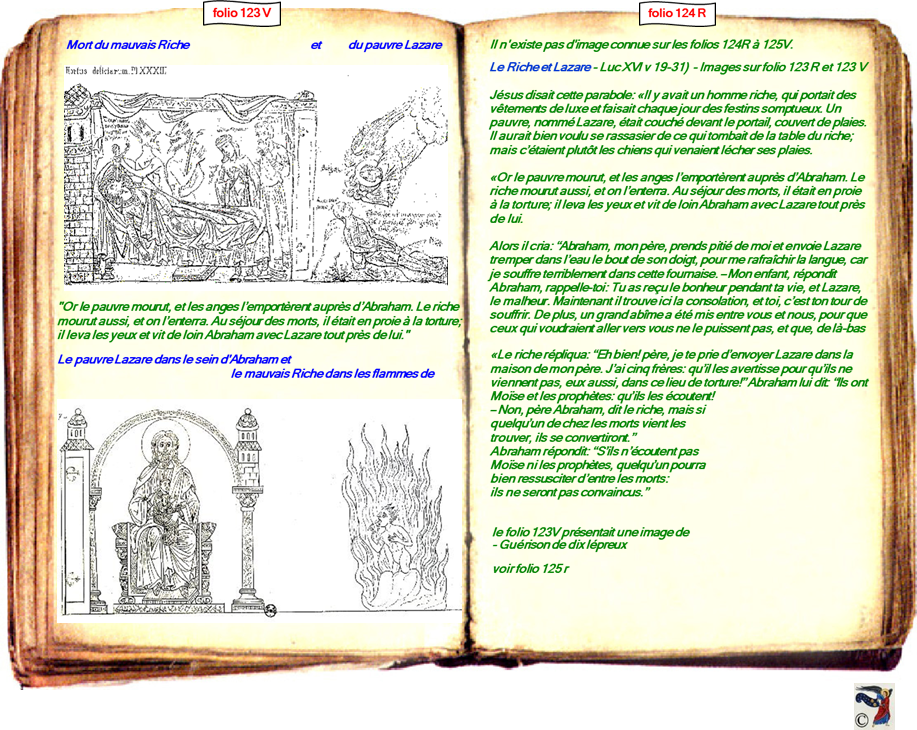 folio 123 V
Mort du mauvais Riche et du pauvre Lazare
"Or le pauvre mourut, et les anges l'emportèrent auprès d'Abraham. Le riche
mourut aussi, et on l'enterra. Au séjour des morts, il était en proie à la torture;
il leva les yeux et vit de loin Abraham avec Lazare tout près de lui."
Le pauvre Lazare dans le sein d'Abraham et
le mauvais Riche dans les flammes de
folio 124 R
Il n'existe pas d'image connue sur les folios 124R à 125V.
Le Riche et Lazare - Luc XVI v 19-31) - Images sur folio 123 R et 123 V
Jésus disait cette parabole: «Il y avait un homme riche, qui portait des
vêtements de luxe et faisait chaque jour des festins somptueux. Un
pauvre, nommé Lazare, était couché devant le portail, couvert de plaies.
Il aurait bien voulu se rassasier de ce qui tombait de la table du riche;
mais c'étaient plutôt les chiens qui venaient lécher ses plaies.
«Or le pauvre mourut, et les anges l'emportèrent auprès d'Abraham. Le
riche mourut aussi, et on l'enterra. Au séjour des morts, il était en proie
à la torture; il leva les yeux et vit de loin Abraham avec Lazare tout près
de lui.
Alors il cria: "Abraham, mon père, prends pitié de moi et envoie Lazare
tremper dans l'eau le bout de son doigt, pour me rafraîchir la langue, car
je souffre terriblement dans cette fournaise. – Mon enfant, répondit
Abraham, rappelle-toi: Tu as reçu le bonheur pendant ta vie, et Lazare,
le malheur. Maintenant il trouve ici la consolation, et toi, c'est ton tour de
souffrir. De plus, un grand abîme a été mis entre vous et nous, pour que
ceux qui voudraient aller vers vous ne le puissent pas, et que, de là-bas
«Le riche répliqua: "Eh bien! père, je te prie d'envoyer Lazare dans la
maison de mon père. J'ai cinq frères: qu'il les avertisse pour qu'ils ne
viennent pas, eux aussi, dans ce lieu de torture!" Abraham lui dit: "Ils ont
Moïse et les prophètes: qu'ils les écoutent!
– Non, père Abraham, dit le riche, mais si
quelqu'un de chez les morts vient les
trouver, ils se convertiront."
Abraham répondit: "S'ils n'écoutent pas
Moïse ni les prophètes, quelqu'un pourra
bien ressusciter d'entre les morts:
ils ne seront pas convaincus."
le folio 123V présentait une image de
- Guérison de dix lépreux
voir folio 125 r
©